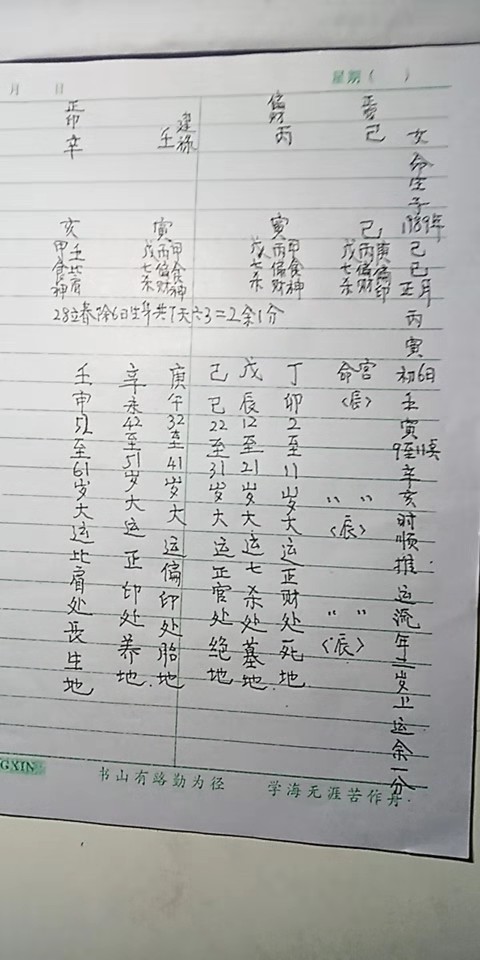 月 日 星期( )
女命生于1989年己巳正月丙寅初6日壬寅9至11点辛亥时顺推运流年二岁上运余一分
正官
己
巳
庚偏印
丙偏财
戊七杀
偏财
丙
寅
甲食神
丙偏财
戊七杀
建禄
壬
寅
甲食神
丙偏财
戊七杀
正印
辛
亥
壬比肩
甲食神
28立春除6日生年共7天÷3=2余1分
命宫〈辰〉
〃 〃〈辰〉
〃 〃〈辰〉
丁卯2至11岁大运正财处死地
戊辰12至21岁大运七杀处墓地
己巳22至31岁大运正官处绝地
庚午32至41岁大运偏印处胎地
辛未42至51岁大运正印处养地
壬申52至61岁大运比肩处长生地
GXIN 书山有路勤为径 学海无涯苦作舟